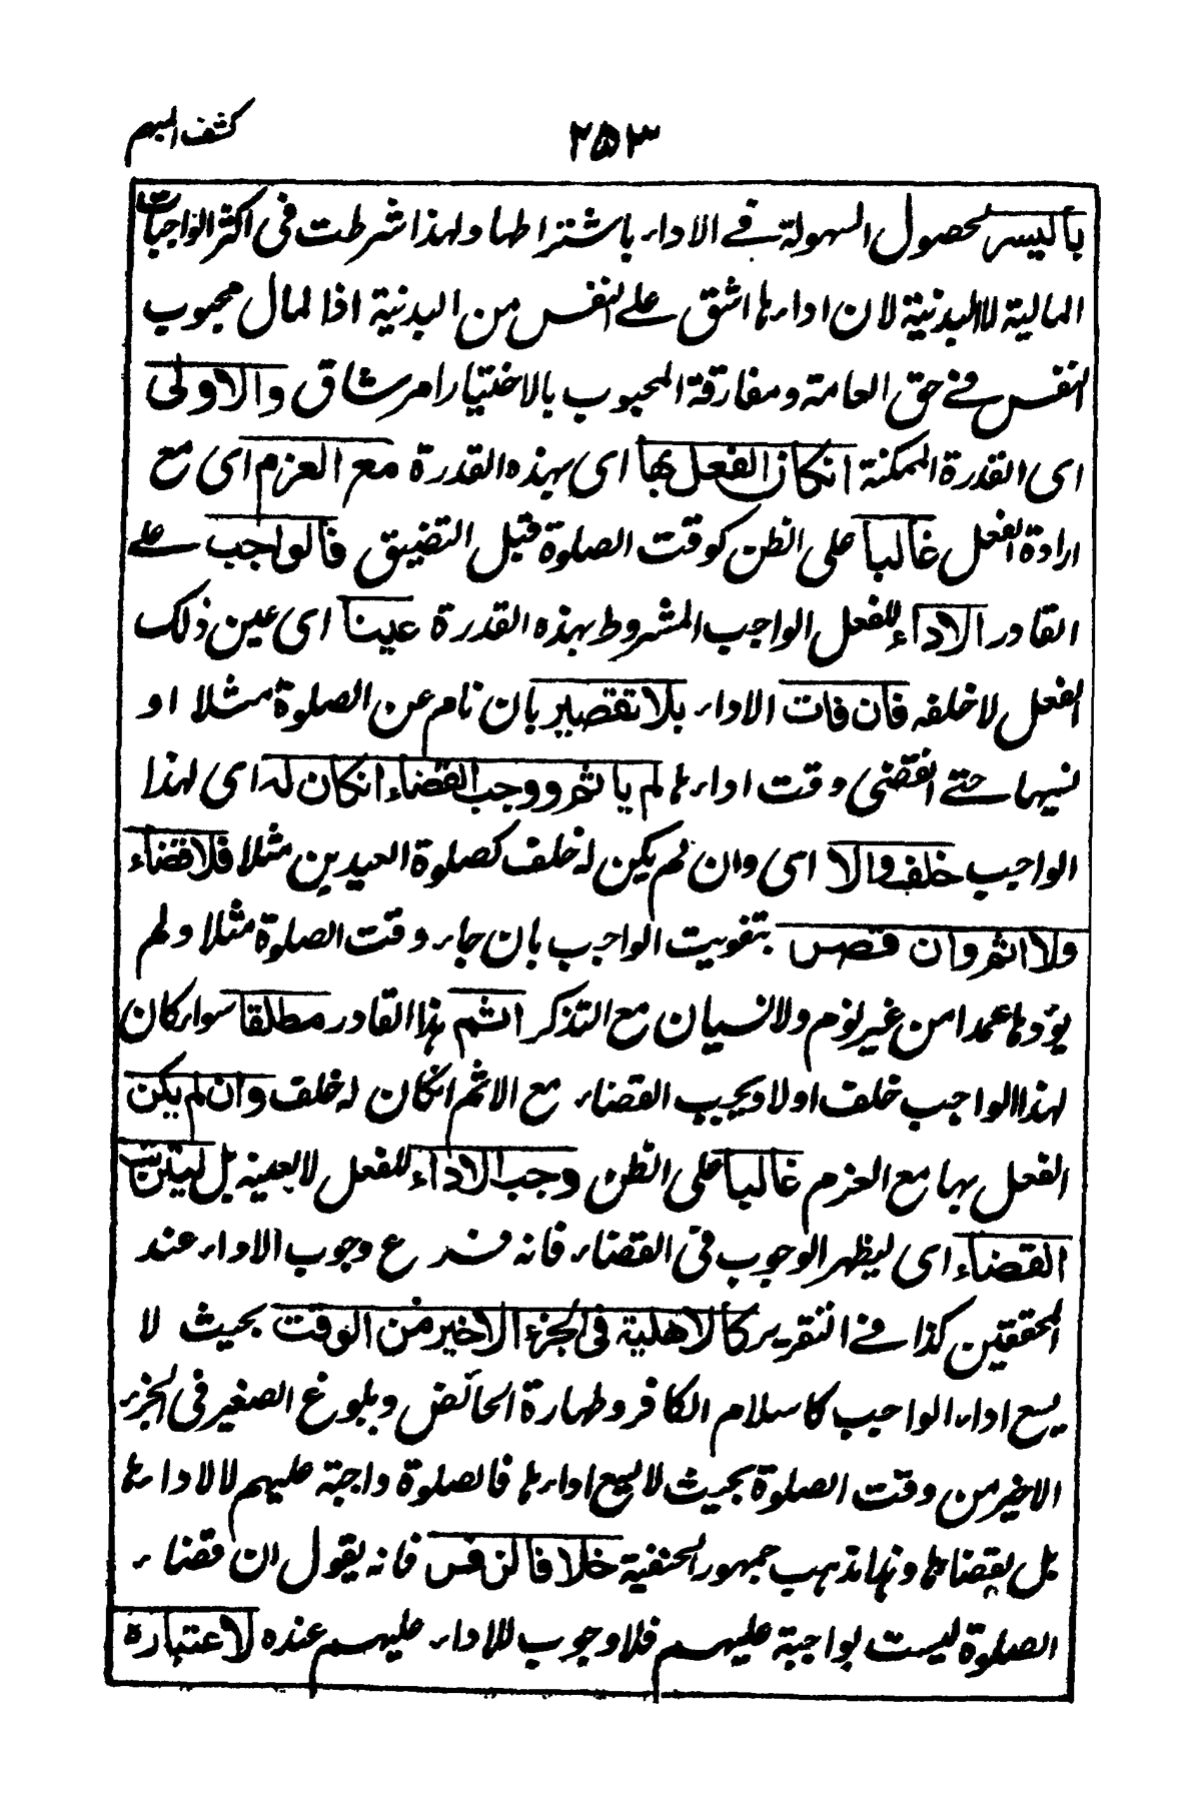 كشف المبهم
۲۵۳
باليسر لحصول السهولة في الاداء باشتراطها ولهذا شرطت في اكثر الواجبات
المالية لا البدنية لان اداءها اشق على النفس من البدنية اذ المال محبوب
النفس في حق العامة ومفارقة المحبوب بالاختيار امر شاق والاولى
اى القدرة الممكنة انكان الفعل بها اى بهذه القدرة مع العزم اى مع
ارادة الفعل غالبا على الظن كوقت الصلوة قبل التضيق فالواجب على
القادر الاداء للفعل الواجب المشروط بهذه القدرة عينا اى عين ذلك
الفعل لا خلفه فان فات الاداء بلا تقصير بان نام عن الصلوة مثلا او
نسيها حتى انقضى وقت اداءها لم ياثم ووجب القضاء انكان له اى لهذا
الواجب خلف والا اى وان لم يكن له خلف كصلوة العيدين مثلا فلا قضاء
ولا اثم وان قصر بتفويت الواجب بان جاء وقت الصلوة مثلا ولم
يؤدها عمدا من غير نوم ولا نسيان مع التذكر اثم هذا القادر مطلقا سواء كان
لهذا الواجب خلف اولا ويجب القضاء مع الاثم انكان له خلف وان لم يكن
الفعل بها مع العزم غالبا على الظن وجب الاداء للفعل لا بعينه بل ليترتب
القضاء اى ليظهر الوجوب في القضاء فانه فرع وجوب الاداء عند
المحققين كذا في التقرير كالاهلية في الجزء الاخير من الوقت بحيث لا
يسع اداء الواجب كاسلام الكافر وطهارة الحائض وبلوغ الصغير في الجزء
الاخير من وقت الصلوة بحيث لا يسع اداءها فالصلوة واجبة عليهم لا لاداءها
بل لقضاءها وهذا مذهب جمهور الحنفية خلافا لزفر فانه يقول ان قضاء
الصلوة ليست بواجبة عليهم فلا وجوب للاداء عليهم عنده لاعتباره